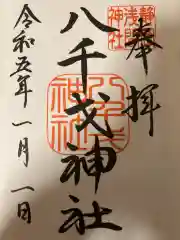 奉拝
静岡
浅間
神社
八千戈神社
令和五年一月一日